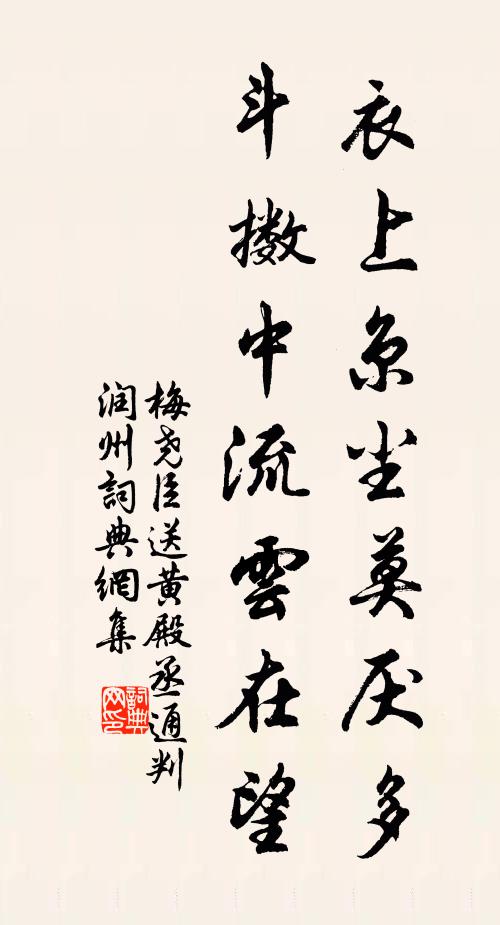 衣上京尘莫厌多
斗擞中流雲在望
梅尧臣送黄殿丞通判
润州詞典網集
詞典网印